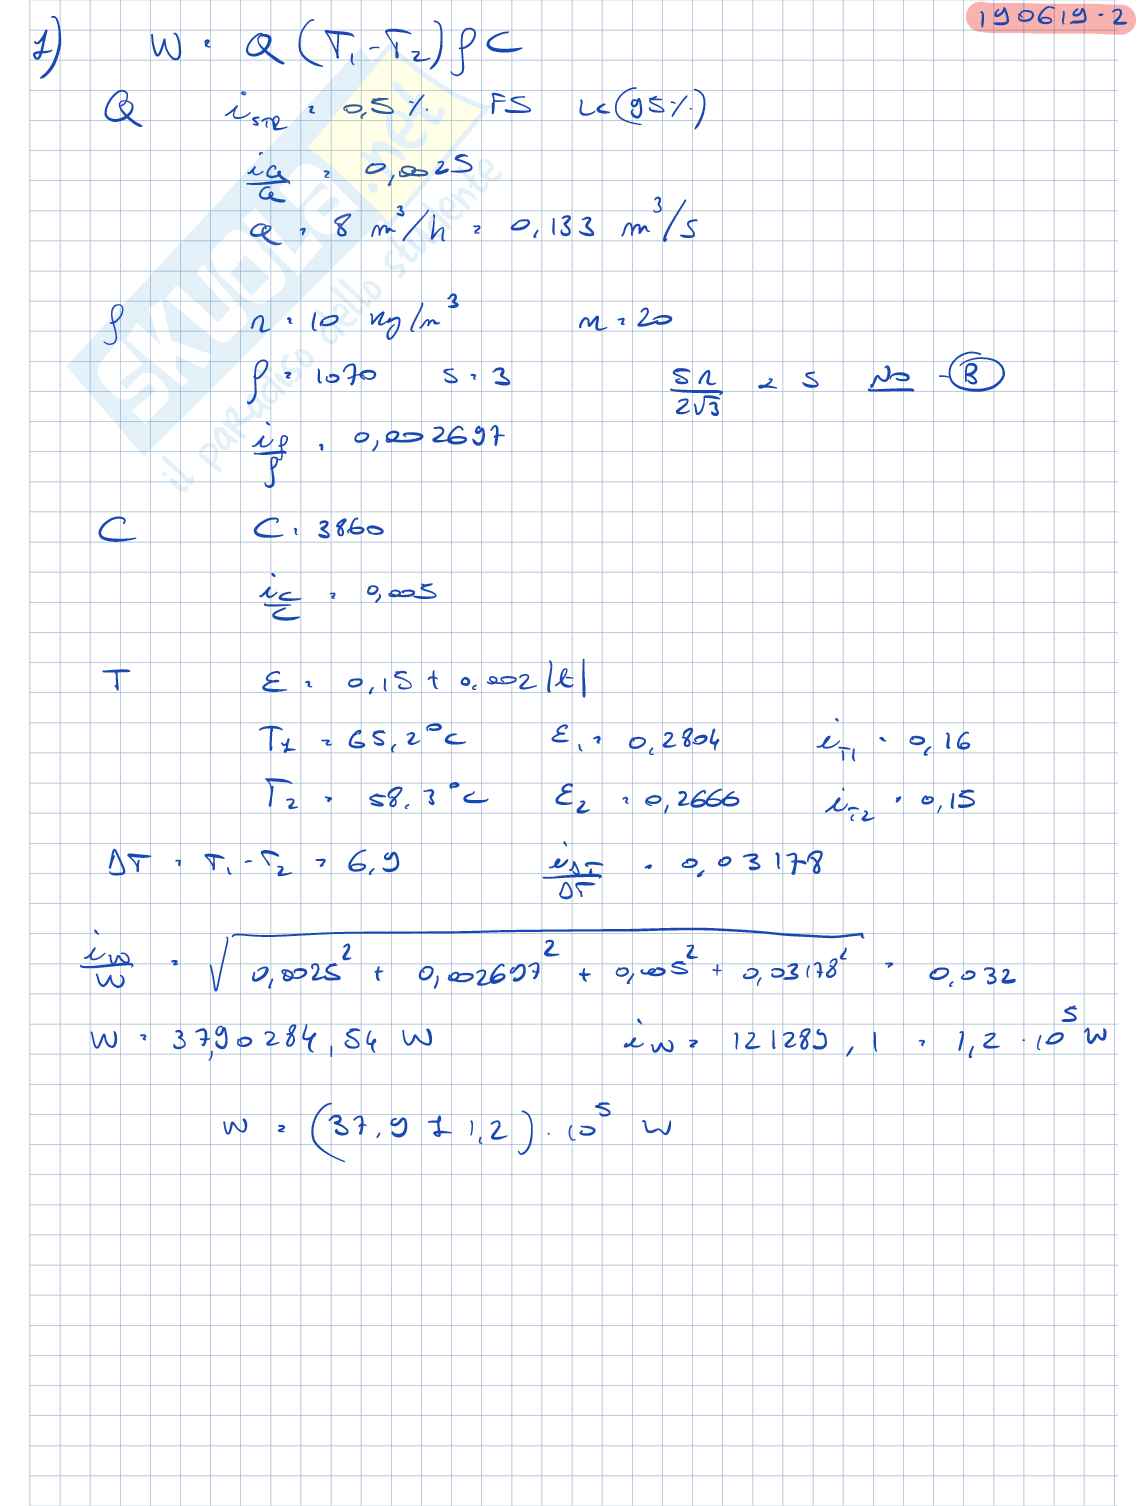 190619-2
1) W = Q (T₁-T₂) ρ C
Q i_STR = 0,5 % FS LC(95%)
i_Q/Q = 0,0025
Q = 8 m³/h = 0,133 m³/s
ρ r = 10 kg/m³ n = 20
ρ = 1070 s = 3 5r/2√3 < s No - B
i_ρ/ρ = 0,002697
C C = 3860
i_C/C = 0,005
T ε = 0,15 + 0,002 |t|
T₁ = 65,2°C ε₁ = 0,2804 i_T1 = 0,16
T₂ = 58,3°C ε₂ = 0,2666 i_T2 = 0,15
ΔT = T₁-T₂ = 6,9 i_ΔT/ΔT = 0,03178
i_W/W = √(0,0025² + 0,002697² + 0,005² + 0,03178²) = 0,032
W = 3790284,54 W i_W = 121289,1 = 1,2·10⁵ W
W = (37,9 ± 1,2)·10⁵ W
SKUOLA.net
il paradiso dello studente